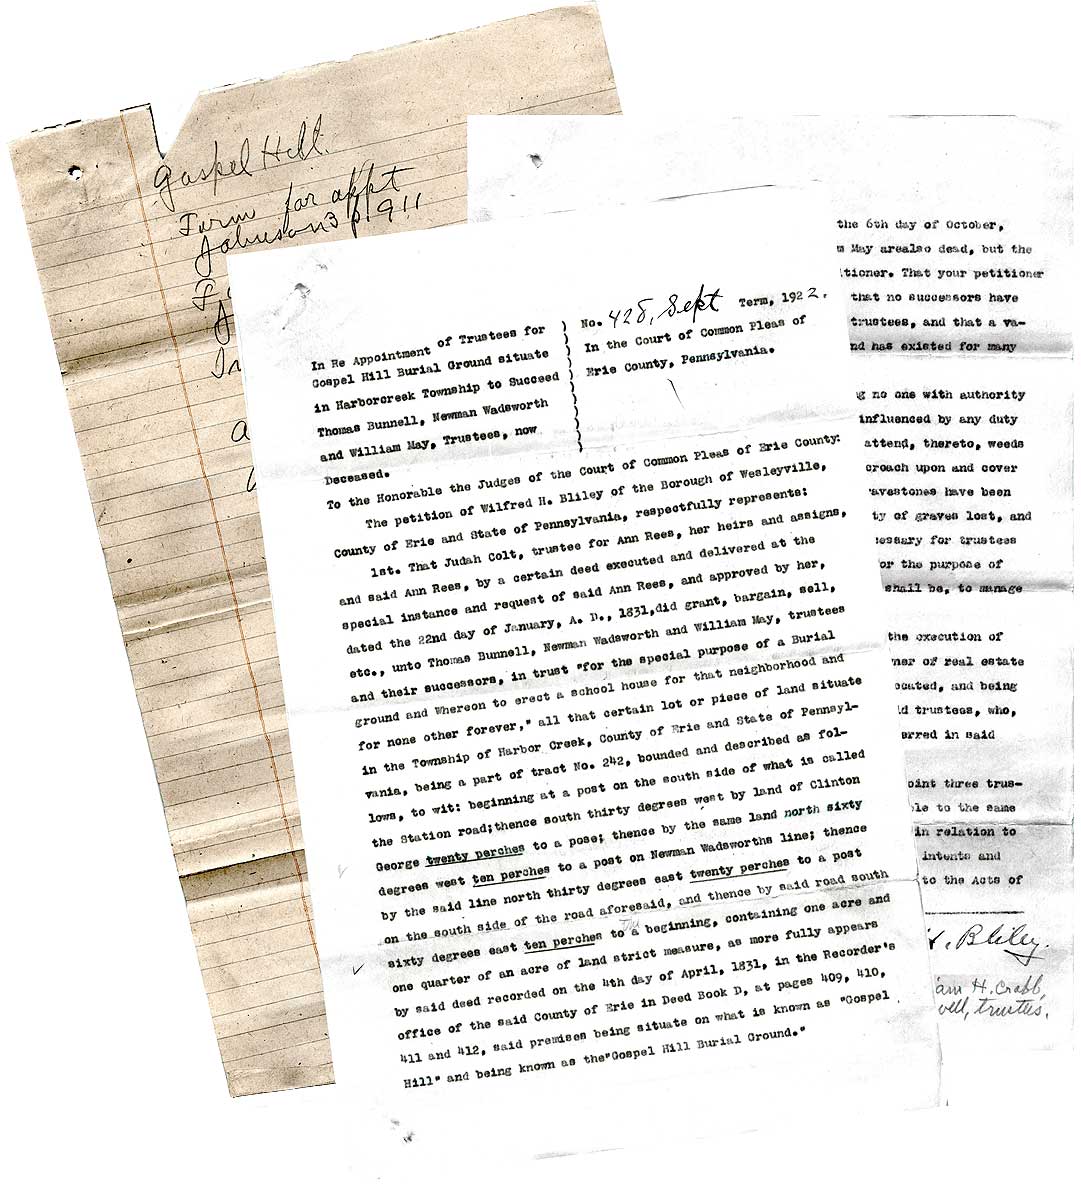 Gospel Hill.
Form for appt
Johnson 3 p. 911
In
a
In Re Appointment of Trustees for
Gospel Hill Burial Ground Situate
in Harborcreek Township to Succeed
Thomas Bunnell, Newman Wadsworth
and William May, Trustees, now
Deceased.
No. 428, Sept Term, 1922.
In the Court of Common Pleas of
Erie County, Pennsylvania.
To the Honorable the Judges of the Court of Common Pleas of Erie County:
The petition of Wilfred H. Bliley of the Borough of Wesleyville,
County of Erie and State of Pennsylvania, respectfully represents:
1st. That Judah Colt, trustee for Ann Rees, her heirs and assigns,
and said Ann Rees, by a certain deed executed and delivered at the
special instance and request of said Ann Rees, and approved by her,
dated the 22nd day of January, A. D., 1831,did grant, bargain, sell,
etc., unto Thomas Bunnell, Newman Wadsworth and William May, trustees
and their successors, in trust "for the special purpose of a Burial
ground and Whereon to erect a school house for that neighborhood and
for none other forever," all that certain lot or piece of land situate
in the Township of Harbor Creek, County of Erie and State of Pennsyl-
vania, being a part of tract No. 242, bounded and described as fol-
lows, to wit: beginning at a post on the south side of what is called
the Station road;thence south thirty degrees west by land of Clinton
George twenty perches to a pose; thence by the same land north sixty
degrees west ten perches to a post on Newman Wadsworths line; thence
by the said line north thirty degrees east twenty perches to a post
on the south side of the road aforesaid, and thence by said road south
sixty degrees east ten perches to a beginning, containing one acre and
one quarter of an acre of land strict measure, as more fully appears
by said deed recorded on the 4th day of April, 1831, in the Recorder's
office of the said County of Erie in Deed Book D, at pages 409, 410,
411 and 412, said premises being situate on what is known as "Gospel
Hill" and being known as the"Gospel Hill Burial Ground."
the 6th day of October,
m May arealso dead, but the
tioner. That your petitioner
that no successors have
trustees, and that a va-
nd has existed for many
g no one with authority
influenced by any duty
attend, thereto, weeds
croach upon and cover
avestones have been
ty of graves lost, and
essary for trustees
or the purpose of
shall be, to manage
the execution of
ner of real estate
ocated, and being
d trustees, who,
erred in said
oint three trus-
le to the same
in relation to
intents and
to the Acts of
H. Bliley.
am H. Crabb,
vell, trustees.